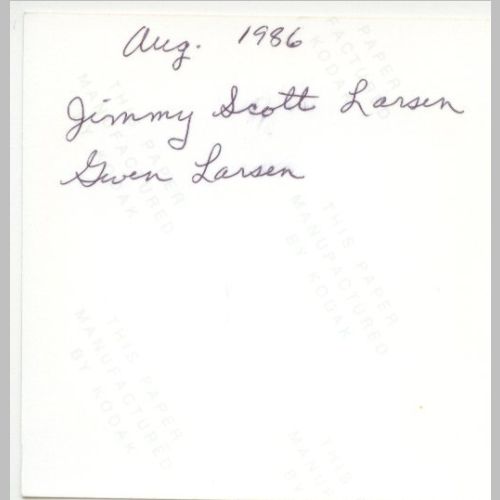 Aug. 1986
Jimmy Scott Larsen
Gwen Larsen
THIS PAPER
MANUFACTURED
BY KODAK
THIS PAPER
MANUFACTURED
BY KODAK
THIS PAPER
MANUFACTURED
BY KODAK
THIS PAPER
MANUFACTURED
BY KODAK
THIS